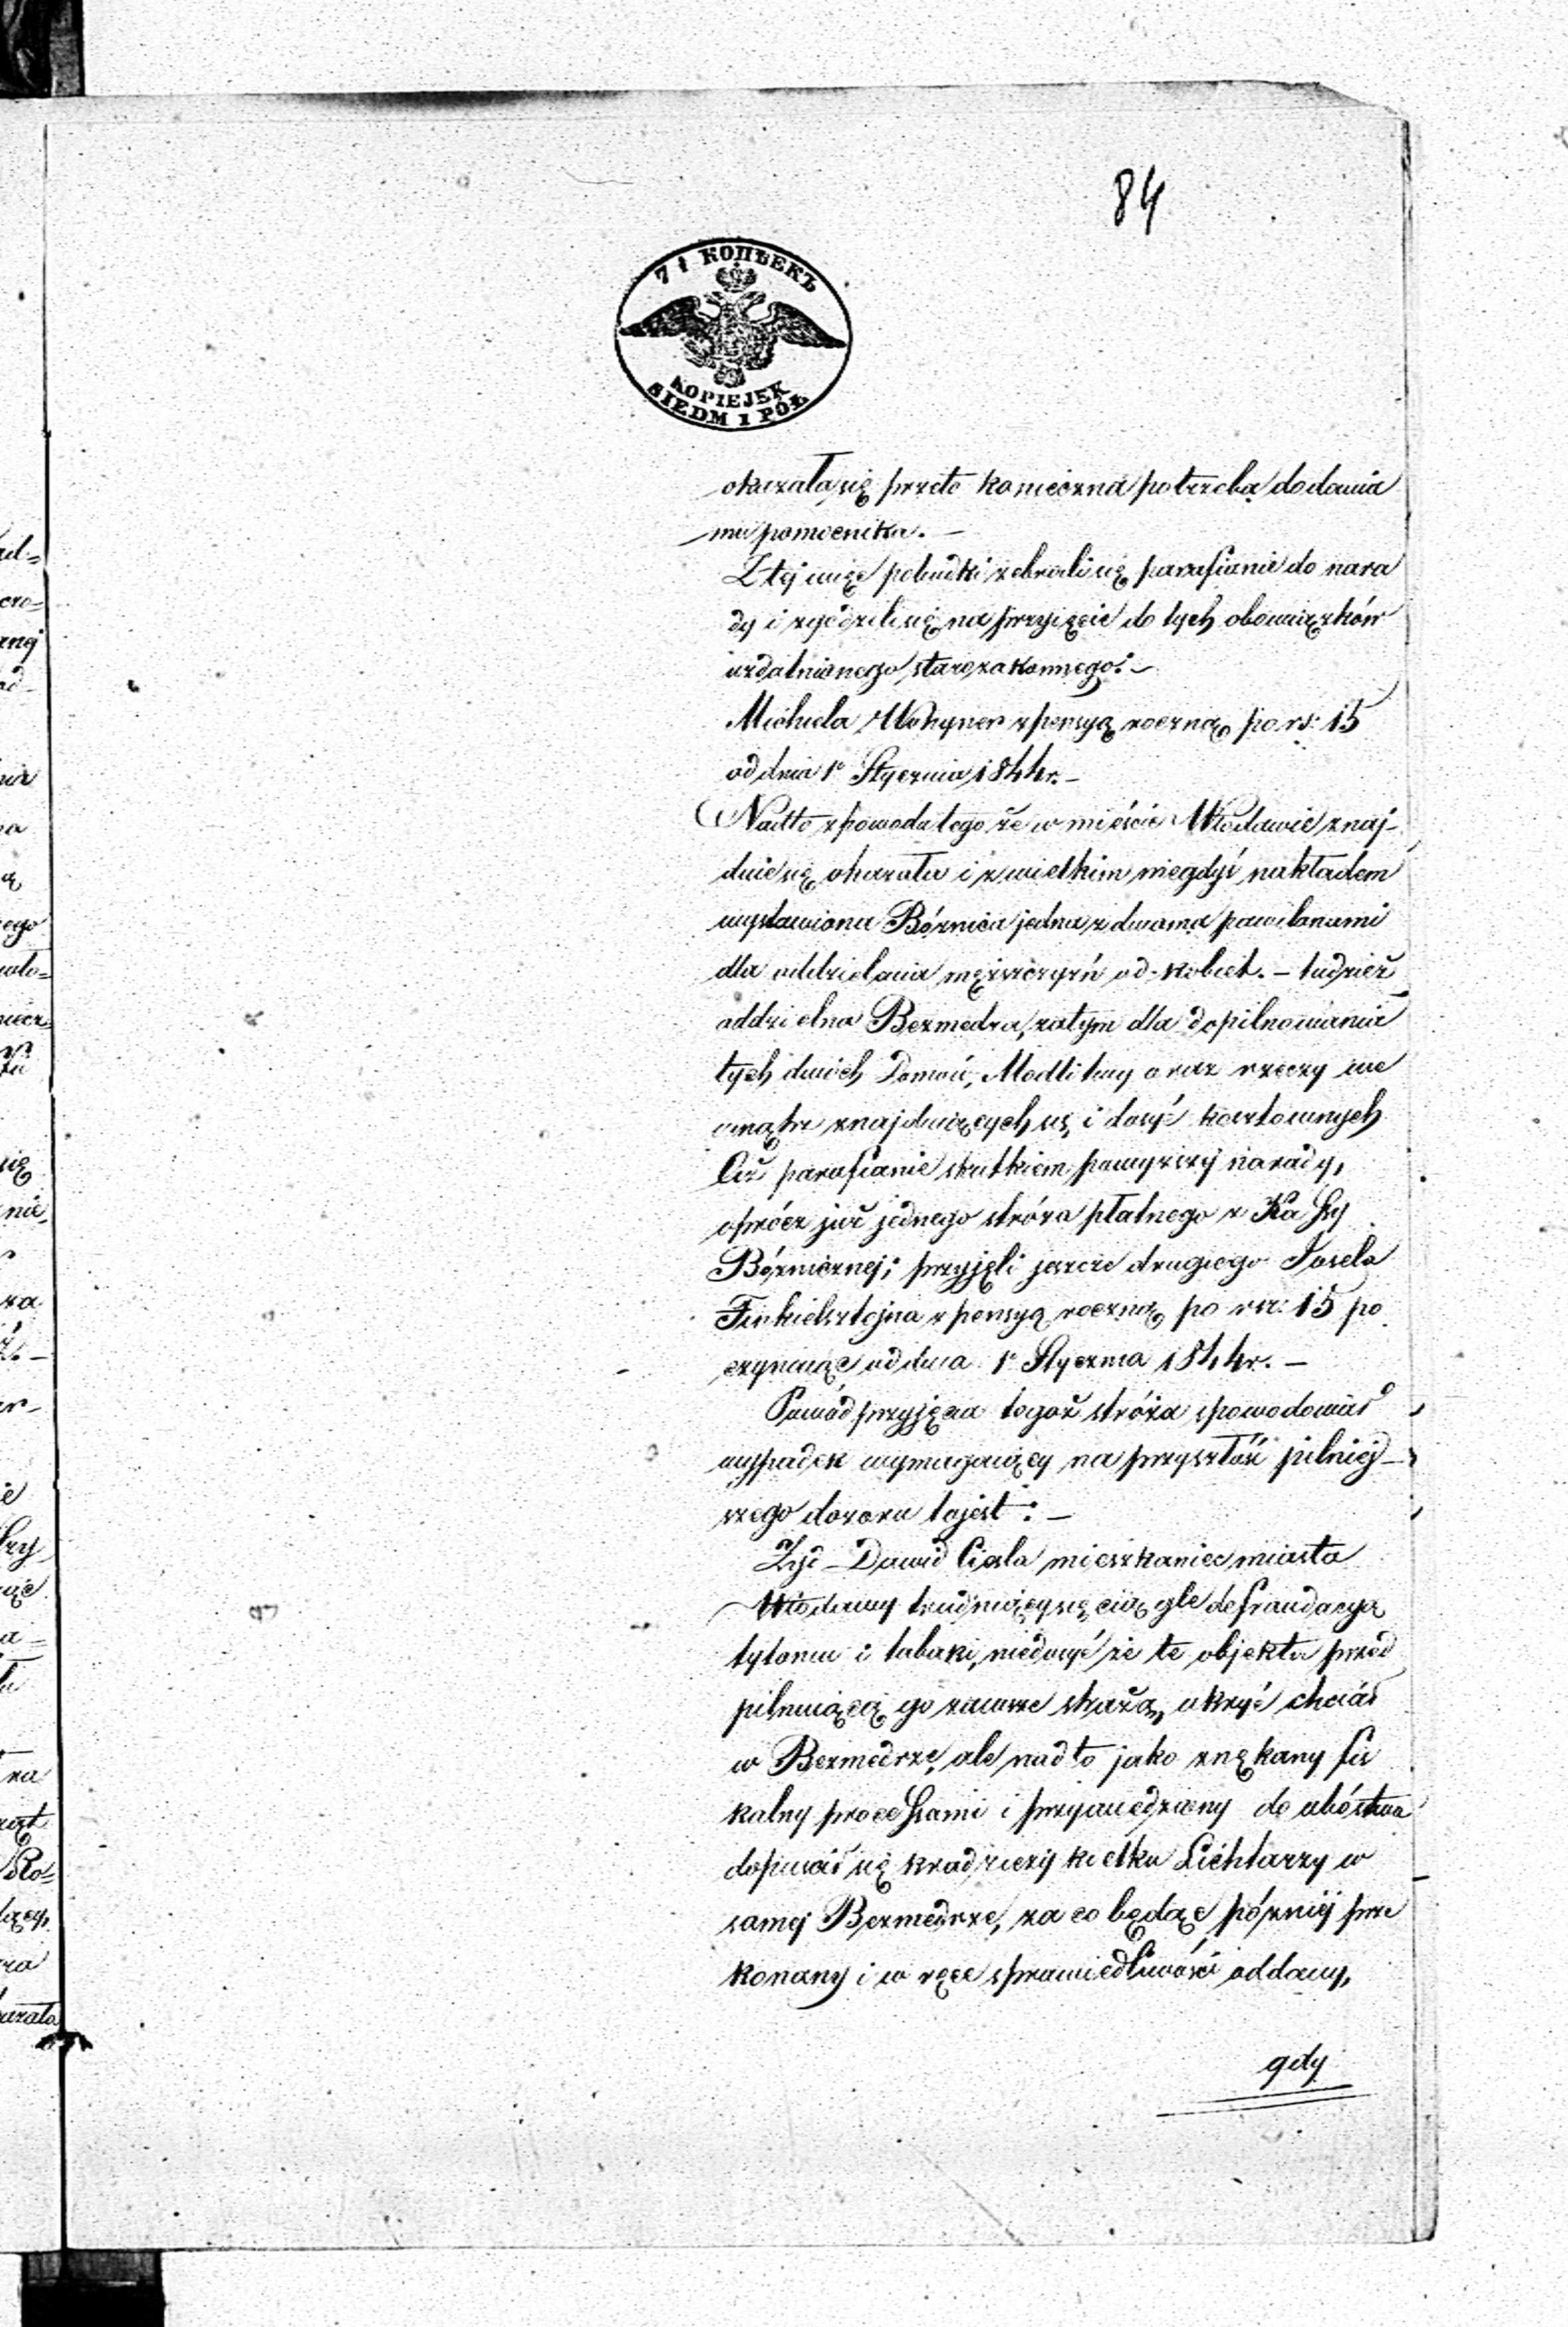 84
7½ КОПѢЕКЪ
KOPIEJEK
SIEDM I PÓŁ
okazała się przeto konieczna potrzeba dodania
mu pomocnika. —
Z tej więc pobudki zebrali się parafianie do nara
dy i zgodzili się na przyjęcie do tych obowiązków
uzdatnionego starozakonnego: —
Michela Wohyner z pensyą roczną po rs: 15
od dnia 1º Stycznia 1844r. —
Nadto z powodu tego że w mieście Włodawie znaj-
duie się okazała i z wielkim niegdyś nakładem
wystawiona Bóżnica jedna z dwoma pawilonami
dla oddzielania mężczyzń od kobiet. — tudzież
oddzielna Bezmedra, zatym dla dopilnowania
tych dwóch Domów, Modlitwy oraz rzeczy we
wnątrz znajduiących się i dosyć kosztownych
Ciż parafianie skutkiem powyższej narady,
oprócz już jednego stróża płatnego z Kassy
Bóżnicznej; przyjęli jeszcze drugiego Josela
Finkielsztejna z pensyą roczną po rsr: 15 po
czynaiąc od dnia 1º Stycznia 1844r. —
Powód przyjęcia tegoż stróża spowodował
wypadek wymagaiący na przyszłość pilniej-
szego dozoru to jest: —
Żyd — Dawid Ciesla mieszkaniec miasta
Włodawy trudniący się ciągle defraudacyą
tytoniu i tabaki, niedosyć że te objekta przed
pilnuiącą go zawsze strażą, ukryć chciał
w Bezmedrze, ale nadto jako znękany fis
kalny processami i przywiedziony do ubóstwa
dopuścił się kradzieży kielku Lichtarzy w
samej Bezmedrze, za co będąc póżniej prze
konany i w ręce sprawiedliwości oddany,
gdy